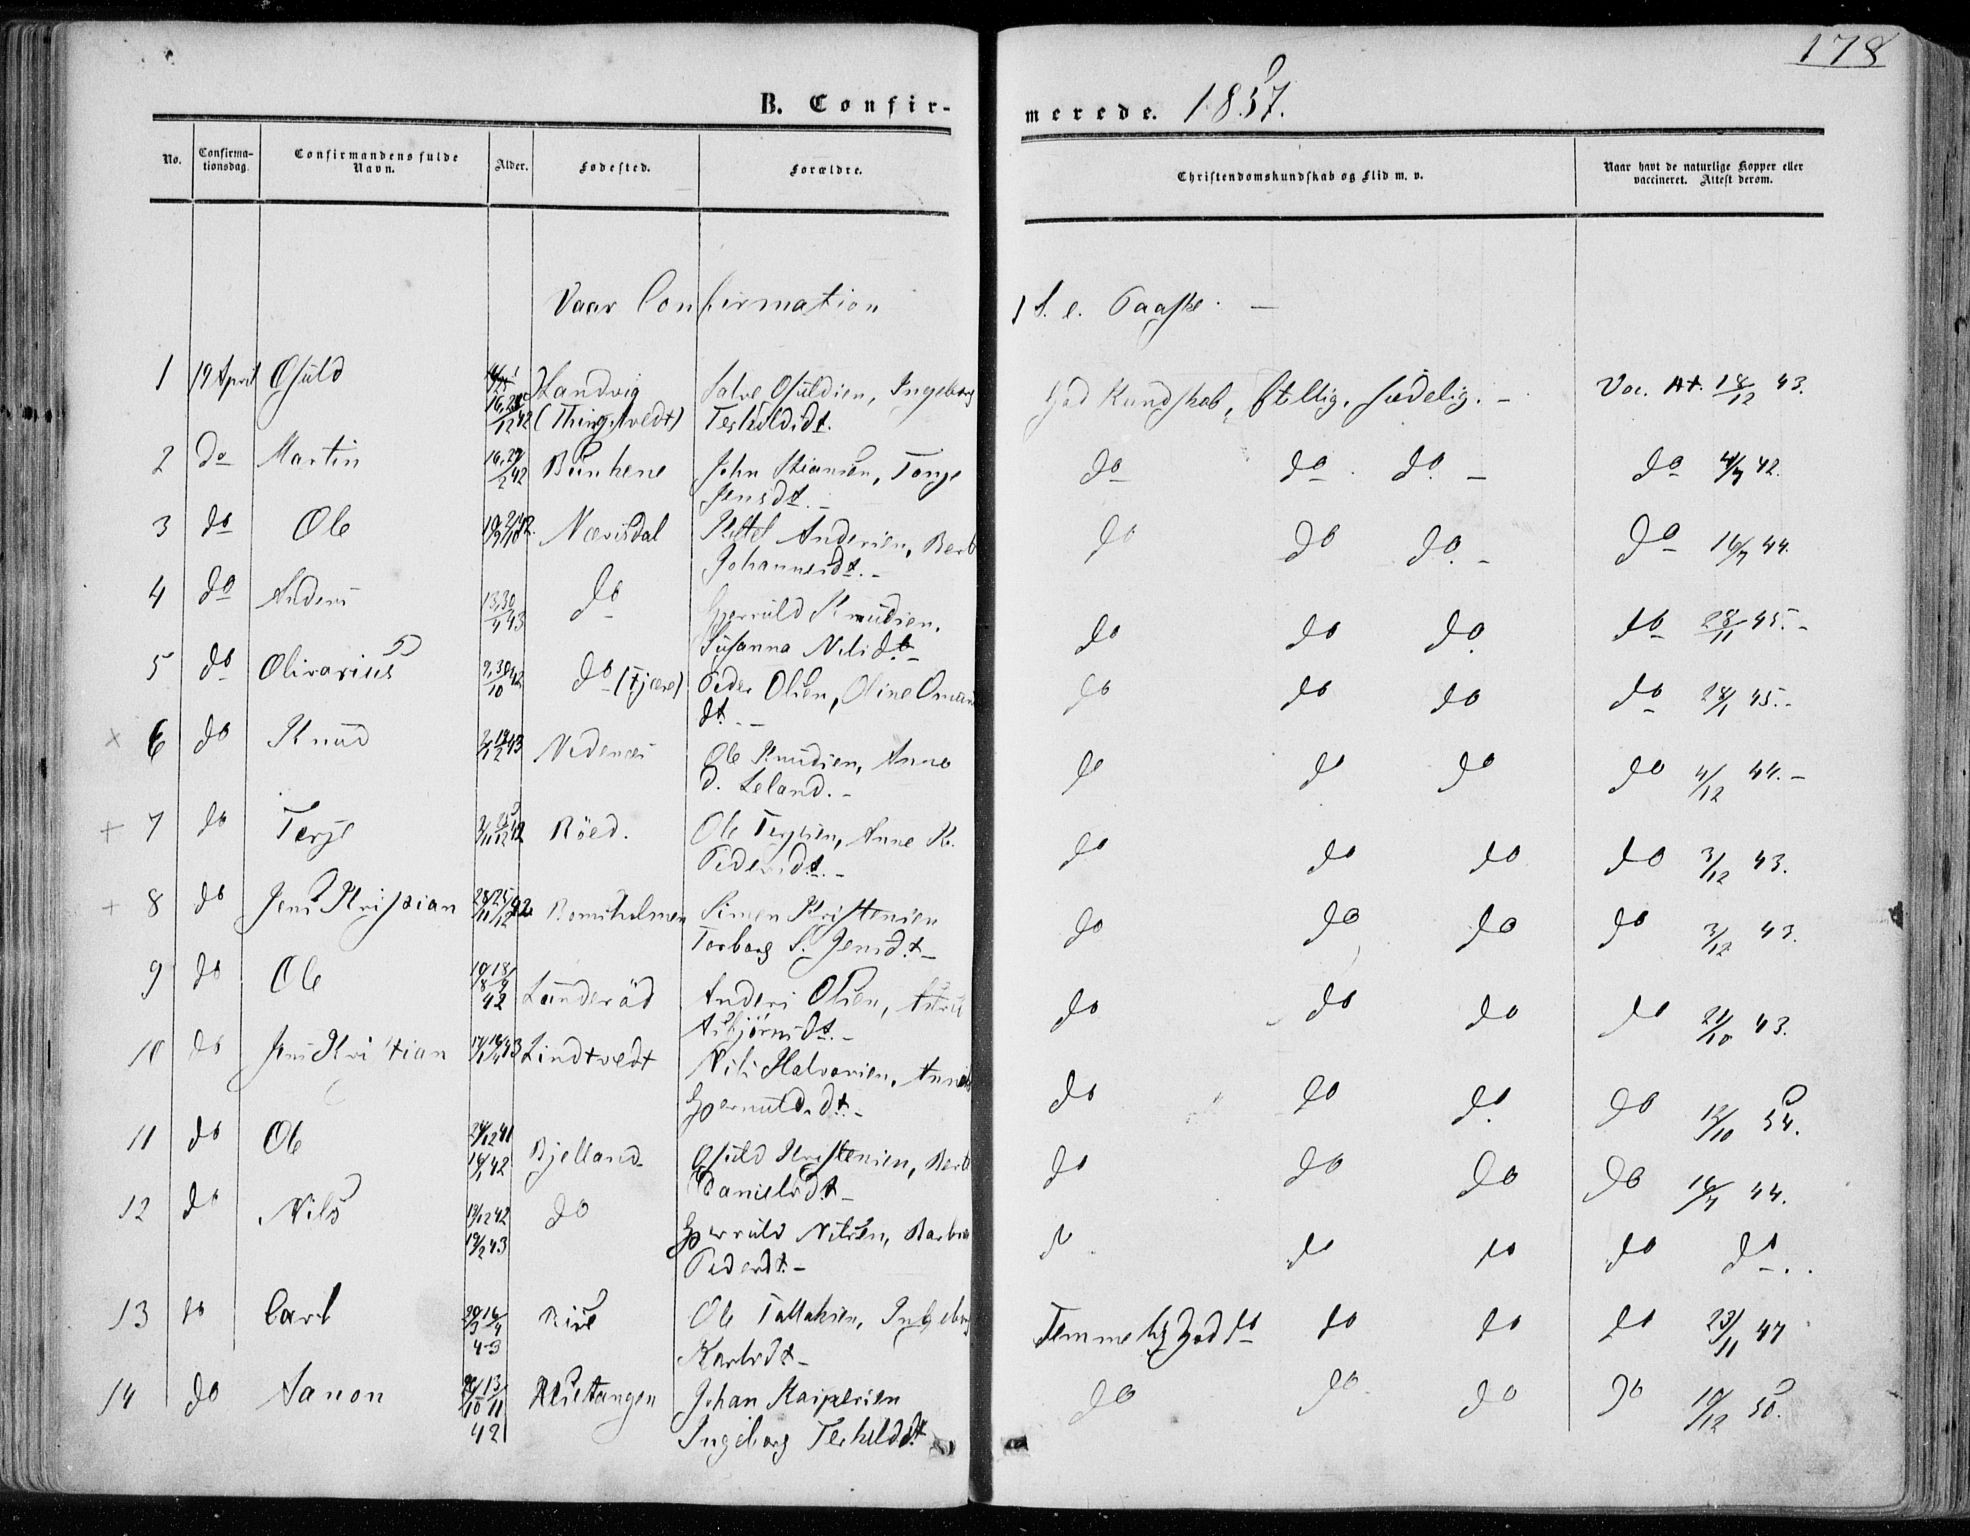 178
B. Confir-
merede. 1857.
No.
Confirma-
tionsdag.
Confirmandens fulde
Navn.
Alder.
Fødested.
Forældre.
Christendomskundskab og Flid m. v.
Naar havt de naturlige Kopper eller
vaccineret. Attest derom.
Vaar Confirmation
1 S. e. Paaske. —
1 19 April Osuld Landvig Salve Osuldsen, Ingeborg God Kundskab, flittig, sædelig. - Vac. At. 18/12 43.
12 42 (Thingstvedt) Terkildsdt.
2 do Martin Bunkene John Stiansen, Tonje do do do. - do 4/7 42.
Jensdt. -
3 do Ole Nævisdal Kittel Andersen, Berb do do do. - do 16/7 44.
Johannesdt. -
4 do Anders 13,30/4 43 do Gjeruld Knudsen, do do do. do 28/11 45. -
Susanna Nilsdt. -
5 do Olivarius 9,30/10 42 do (Fjære) Peder Olsen, Oline do do do do 28/1 45. -
dt. -
x 6 do Knud Nedenæs Ole Knudsen, Anne do do do do 4/12 44. -
d. Leland. -
+ 7 do Terje Röed. Ole Terjesen, Anne K. do do do do 3/12 43.
Pedersdt. -
+ 8 do Jens Kristian Bomsholmen Simen Kristensen do do do do 3/12 43.
Torborg S. Jensdt. -
9 do Ole Landeröd Anders Olsen, do do do do 21/10 43.
42 Asbjørnsdt. -
10 do Jens Kristian Lindtvedt Nils Halvorsen, do do do. do 12/10 54.
Gjeruldsdt. -
11 do Ole 24/12 41 Bjelland Osuld Kristensen, Berb do do do do 16/7 44.
14/1 42 Danielsdt. -
12 do Nils 19/12 42 do Gjeruld Nilsen, Barbra do do do do do. -
19/2 43 Pedersdt. -
13 do Carl Rise Ole Tallaksen, Ingeborg Temmelig God do do do do 23/11 47
43 Karlsdt. -
14 do Aanon Johan Kaspersen do do do do 19/12 50.
42 Ingeborg Terkildsdt.